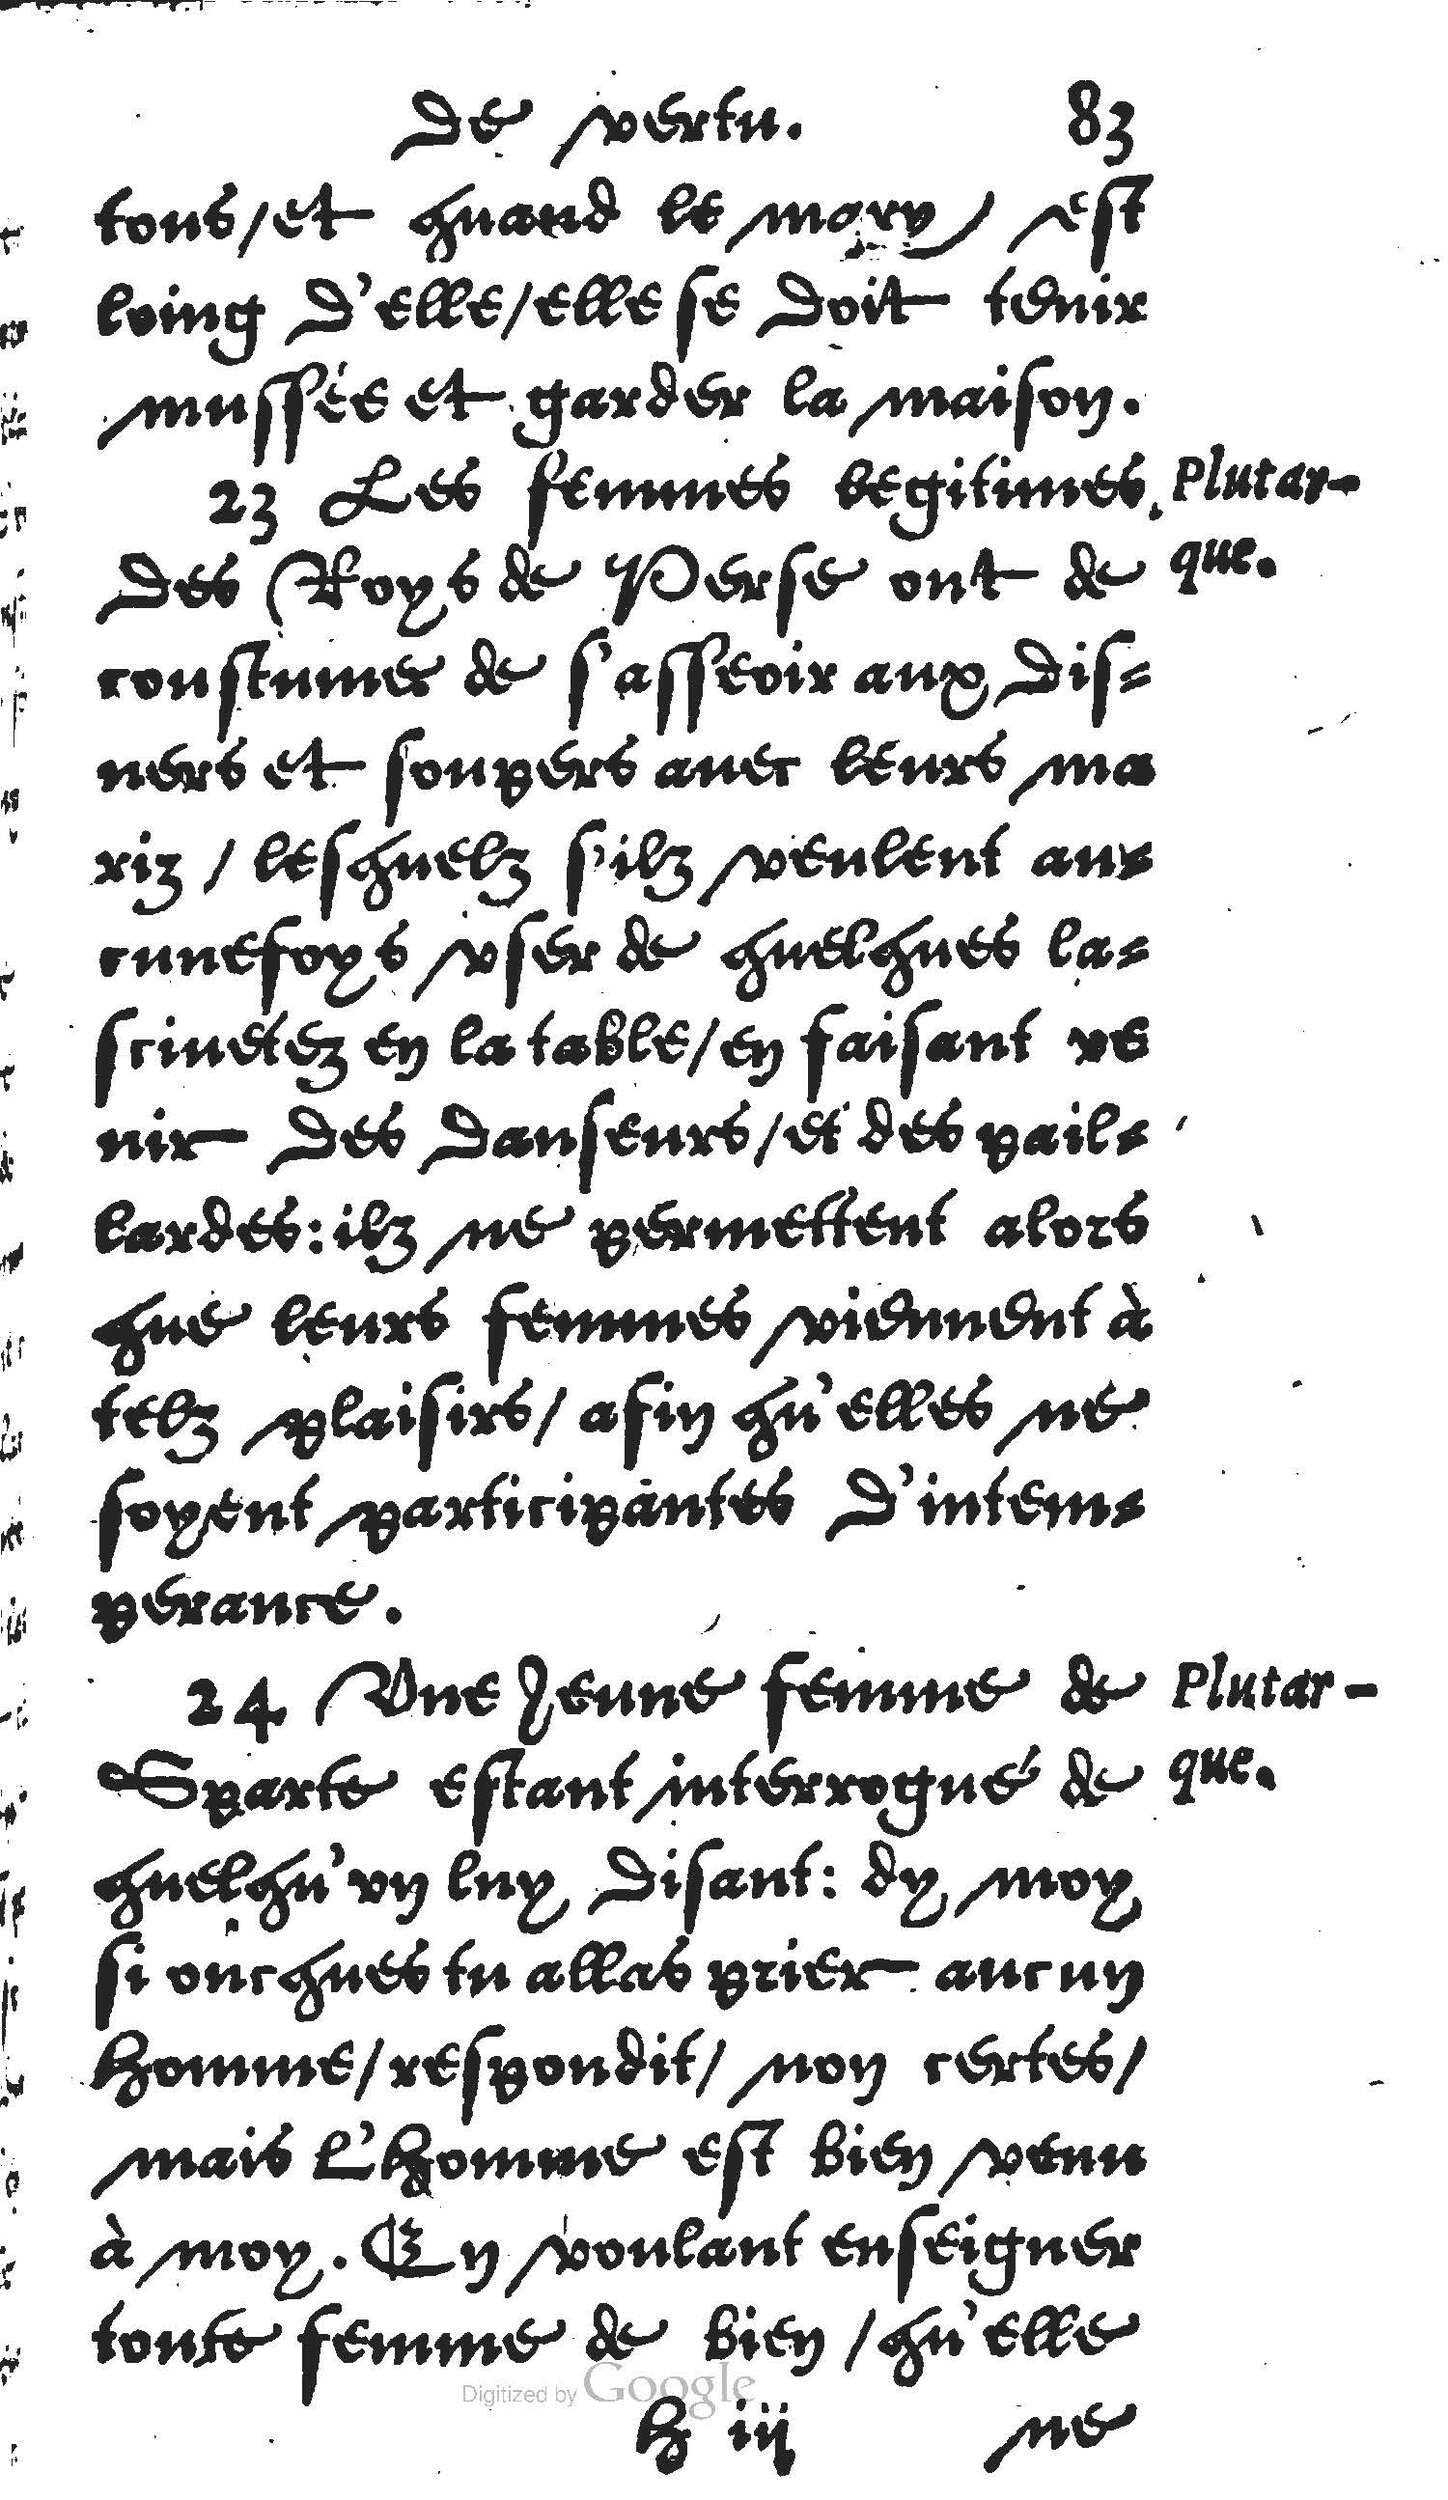 de vertu. 83
tous/et quand le mary/ est
loing d'elle/elle se doit tenir
mussée et garder la maison.
23 Les femmes legitimes Plutar-
des Roys de Perse ont de que.
coustume de s'asseoir aux dis-
ners et soupers auec leurs ma
riz / lesquelz s'ilz veulent au-
cunefoys vser de quelques la-
sciuetez en la table/en faisant ve
nir des danseurs/et des pail-
lardes: ilz ne permettent alors
que leurs femmes viennent à
telz plaisirs/ afin qu'elles ne
soyent participantes d'intem-
perance.
24 Vne Jeune femme de Plutar-
Sparte estant interrogué de que.
quelqu'vn luy disant: dy moy
si oncques tu allas prier aucun
homme/respondit/ non certes/
mais l'homme est bien venu
à moy. En voulant enseigner
toute femme de bien / qu'elle
Digitized by Google
h iij ne